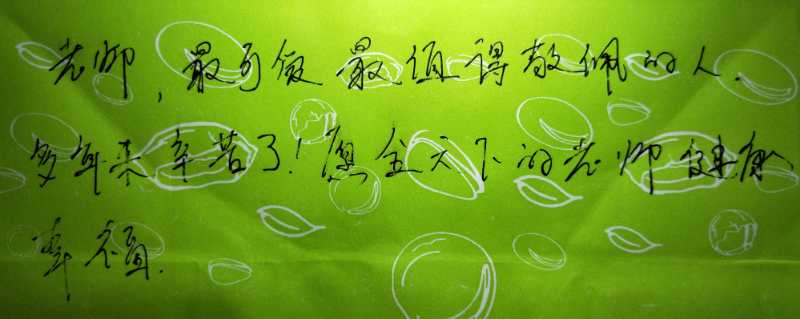 老师，最可敬最值得敬佩的人.
多年来辛苦了！愿全天下的老师健康
幸福.